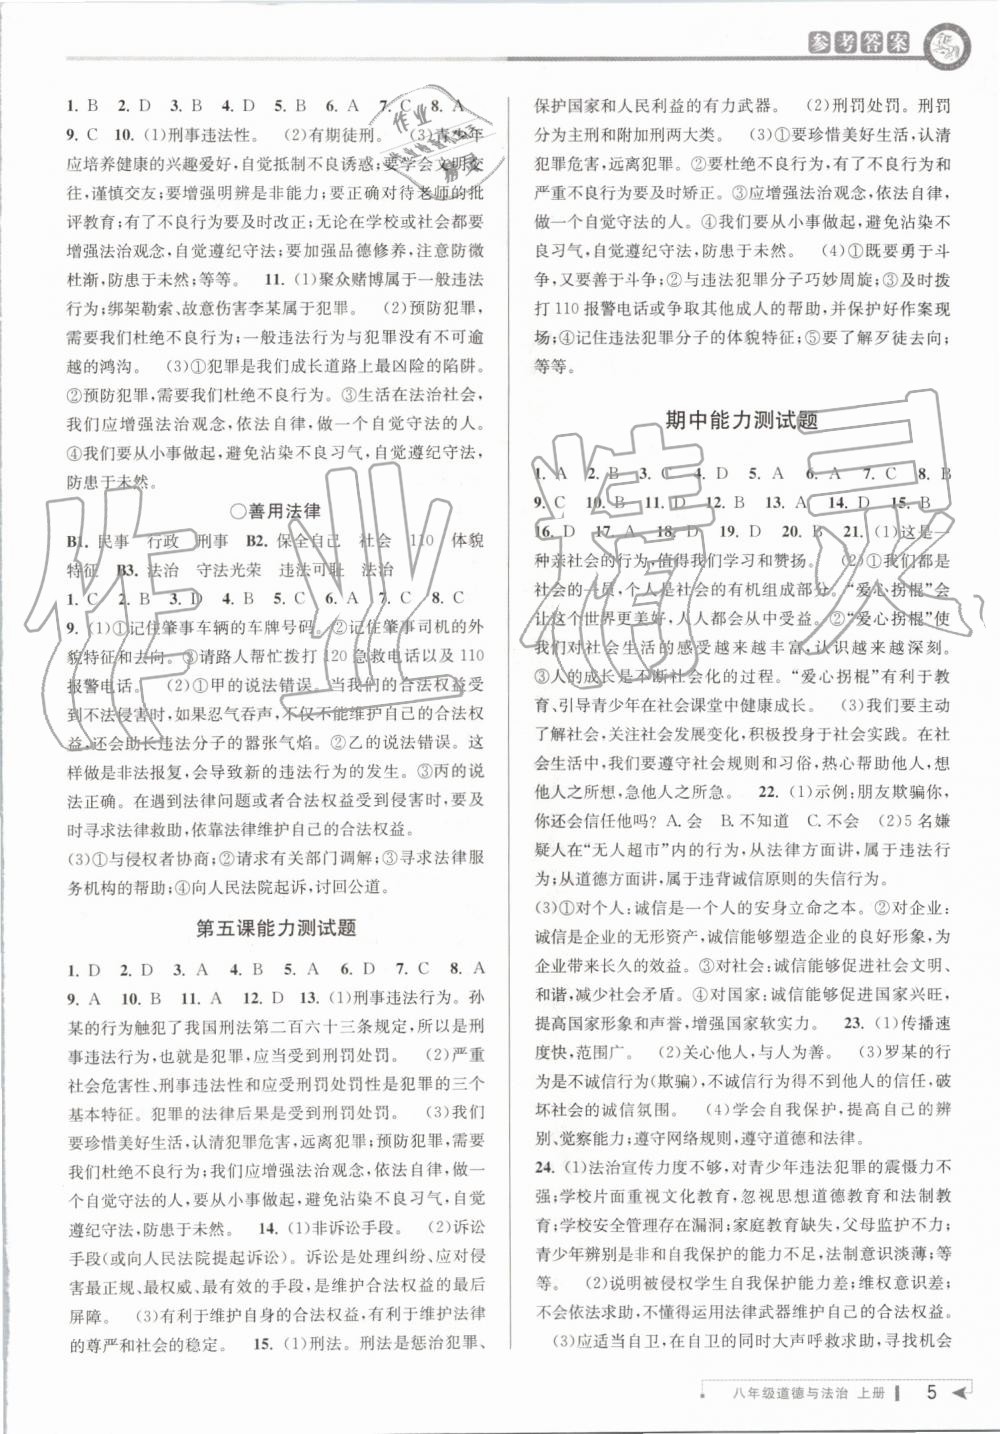 参考答案
1. B 2. D 3. D 4. D 5. B 6. A 7. C 8. A
9. C 10. (1)刑事违法性。 (2)有期徒刑。 (3)青少年
应培养健康的兴趣爱好,自觉抵制不良诱惑;要学会文明交
往,谨慎交友;要增强明辨是非能力;要正确对待老师的批
评教育;有了不良行为要及时改正;无论在学校或社会都要
增强法治观念,自觉遵纪守法;要加强品德修养,注意防微
杜渐,防患于未然;等等。 11. (1)聚众赌博属于一般违法
行为;绑架勒索、故意伤害李某属于犯罪。 (2)预防犯罪,
需要我们杜绝不良行为;一般违法行为与犯罪没有不可逾
越的鸿沟。 (3)①犯罪是我们成长道路上最凶险的陷阱。
②预防犯罪,需要我们杜绝不良行为。③生活在法治社会,
我们应增强法治观念,依法自律,做一个自觉守法的人。
④我们要从小事做起,避免沾染不良习气,自觉遵纪守法,
防患于未然。
○善用法律
B1. 民事 行政 刑事 B2. 保全自己 社会 110 体貌
特征 B3. 法治 守法光荣 违法可耻 法治
1. C 2. B 3. D 4. B 5. C 6. D 7. B 8. C
9. (1)①记住肇事车辆的车牌号码。②记住肇事司机的外
貌特征和去向。③请路人帮忙拨打 120 急救电话以及 110
报警电话。 (2)①甲的说法错误。当我们的合法权益受
到不法侵害时,如果忍气吞声,不仅不能维护自己的合法权
益,还会助长违法分子的嚣张气焰。②乙的说法错误。
这样做是非法报复,会导致新的违法行为的发生。③丙的说
法正确。在遇到法律问题或者合法权益受到侵害时,要及
时寻求法律救助,依靠法律维护自己的合法权益。
(3)①与侵权者协商;②请求有关部门调解;③寻求法律服
务机构的帮助;④向人民法院起诉,讨回公道。
第五课能力测试题
1. D 2. D 3. A 4. B 5. A 6. D 7. C 8. A
9. A 10. B 11. A 12. D 13. (1)刑事违法行为。孙
某的行为触犯了我国刑法第二百六十三条规定,所以是刑
事违法行为,也就是犯罪,应当受到刑罚处罚。 (2)严重
社会危害性、刑事违法性和应受刑罚处罚性是犯罪的三个
基本特征。犯罪的法律后果是受到刑罚处罚。 (3)我们
要珍惜美好生活,认清犯罪危害,远离犯罪;预防犯罪,需要
我们杜绝不良行为;我们应增强法治观念,依法自律,做一个
自觉守法的人,要从小事做起,避免沾染不良习气,自觉
遵纪守法,防患于未然。 14. (1)非诉讼手段。 (2)诉讼
手段(或向人民法院提起诉讼)。诉讼是处理纠纷、应对侵害
最正规、最权威、最有效的手段,是维护合法权益的最后
屏障。 (3)有利于维护自身的合法权益,有利于维护法律
的尊严和社会的稳定。 15. (1)刑法。刑法是惩治犯罪、
保护国家和人民利益的有力武器。 (2)刑罚处罚。刑罚
分为主刑和附加刑两大类。 (3)①要珍惜美好生活,认清
犯罪危害,远离犯罪。②要杜绝不良行为,有了不良行为和
严重不良行为要及时矫正。③应增强法治观念,依法自律,
做一个自觉守法的人。④我们要从小事做起,避免沾染不
良习气,自觉遵纪守法,防患于未然。 (4)①既要勇于斗
争,又要善于斗争;②与违法犯罪分子巧妙周旋;③及时拨
打 110 报警电话或争取其他成人的帮助,并保护好作案现
场;④记住违法犯罪分子的体貌特征;⑤要了解歹徒去向;
等等。
期中能力测试题
1. A 2. B 3. C 4. D 5. A 6. A 7. C 8. B
9. C 10. B 11. D 12. B 13. A 14. D 15. B
16. D 17. A 18. D 19. D 20. B 21. (1)这是一
种亲社会的行为,值得我们学习和赞扬。 (2)①我们都是
社会的一员,个人是社会的有机组成部分。“爱心拐棍”会
让这个世界更加美好,人人都会从中受益。②“爱心拐棍”使
我们对社会生活的感受越来越丰富,认识越来越深刻。
③人的成长是不断社会化的过程。“爱心拐棍”有利于教
育、引导青少年在社会课堂中健康成长。 (3)我们要主动
了解社会,关注社会发展变化,积极投身于社会实践。在社
会生活中,我们要遵守社会规则和习俗,热心帮助他人,想
他人之所想,急他人之所急。 22. (1)示例:朋友欺骗你,
你还会信任他吗?A. 会 B. 不知道 C. 不会 (2)5 名嫌
疑人在“无人超市”内的行为,从法律方面讲,属于违法行
为;从道德方面讲,属于违背诚信原则的失信行为。
(3)①对个人:诚信是一个人的安身立命之本。②对企业:
诚信是企业的无形资产,诚信能够塑造企业的良好形象,为
企业带来长久的效益。③对社会:诚信能够促进社会文明、
和谐,减少社会矛盾。④对国家:诚信能够促进国家兴旺,
提高国家形象和声誉,增强国家软实力。 23. (1)传播速
度快,范围广。 (2)关心他人,与人为善。 (3)罗某的行为
是不诚信行为(欺骗),不诚信行为得不到他人的信任,破
坏社会的诚信氛围。 (4)学会自我保护,提高自己的辨
别、觉察能力;遵守网络规则,遵守道德和法律。
24. (1)法治宣传力度不够,对青少年违法犯罪的震慑力不
强;学校片面重视文化教育,忽视思想道德教育和法制教
育;学校安全管理存在漏洞;家庭教育缺失,父母监护不力;
青少年辨别是非和自我保护的能力不足,法律意识淡薄;等
等。 (2)说明被侵权学生自我保护能力差;维权意识差;
不会依法求助,不懂得运用法律武器维护自己的合法权益。
(3)应适当自卫,在自卫的同时大声呼救求助,寻找机会
八年级道德与法治 上册 5
作业精灵